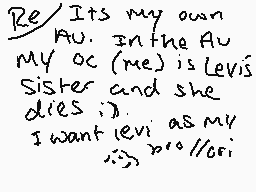 Re/ Its my own
AU. In the AU
My oc (me) is Levi's
sister and she
dies :).
I want levi as my
bro //cri